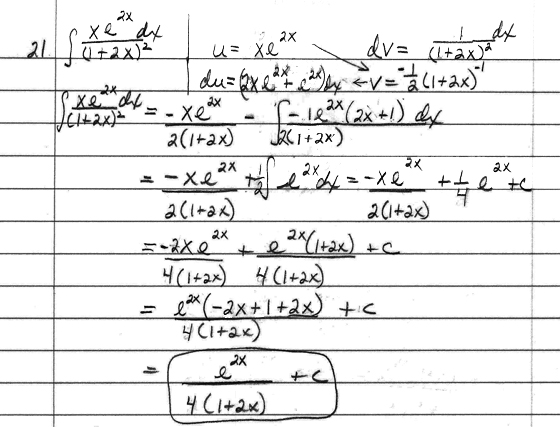 21. ∫ xe^{2x}dx / (1+2x)^2 | u = xe^{2x} dv = 1/(1+2x)^2 dx
du = (2xe^{2x} + e^{2x})dx ← v = -1/2 (1+2x)^{-1}
∫ xe^{2x}dx / (1+2x)^2 = -xe^{2x} / 2(1+2x) - ∫ -1e^{2x}(2x+1) / 2(1+2x) dx
= -xe^{2x} / 2(1+2x) + 1/2 ∫ e^{2x}dx = -xe^{2x} / 2(1+2x) + 1/4 e^{2x} + c
= -2xe^{2x} / 4(1+2x) + e^{2x}(1+2x) / 4(1+2x) + c
= e^{2x}(-2x+1+2x) / 4(1+2x) + c
= e^{2x} / 4(1+2x) + c